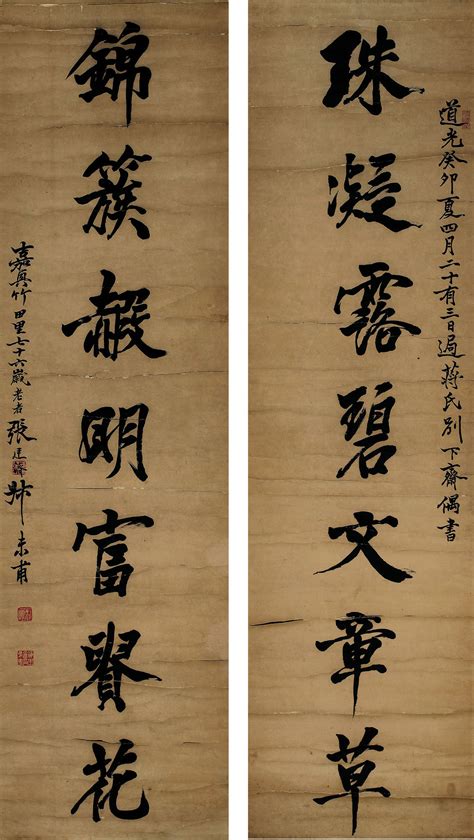 道光癸卯夏四月二十有三日過蔣氏別下齋偶書
珠凝露碧文章草
錦簇赮明富貴花
嘉興竹田里七十六歲老者張廷濟叔未甫